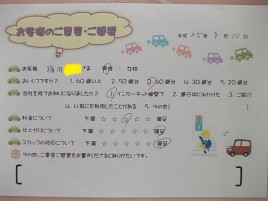 お客様のご意見・ご感想
平成 25年 8月 10日
お名前 さま 男性・女性
おいくつですか? 1. 60歳以上 2. 50歳台 3. 40歳台 4. 30歳台 5. 20歳台
当社を何でお知りになりましたか? 1. インターネット検索で 2. 通りがかりにみかけた 3. ご紹介
4. 以前にも利用したことがある 5. その他(
料金について 不満 ☆ ☆ ☆ ☆ 満足
仕上がりについて 不満 ☆ ☆ ☆ ☆ 満足
スタッフの対応について 不満 ☆ ☆ ☆ ☆ 満足
その他、ご意見ご感想をお書きくださるとありがたいです。